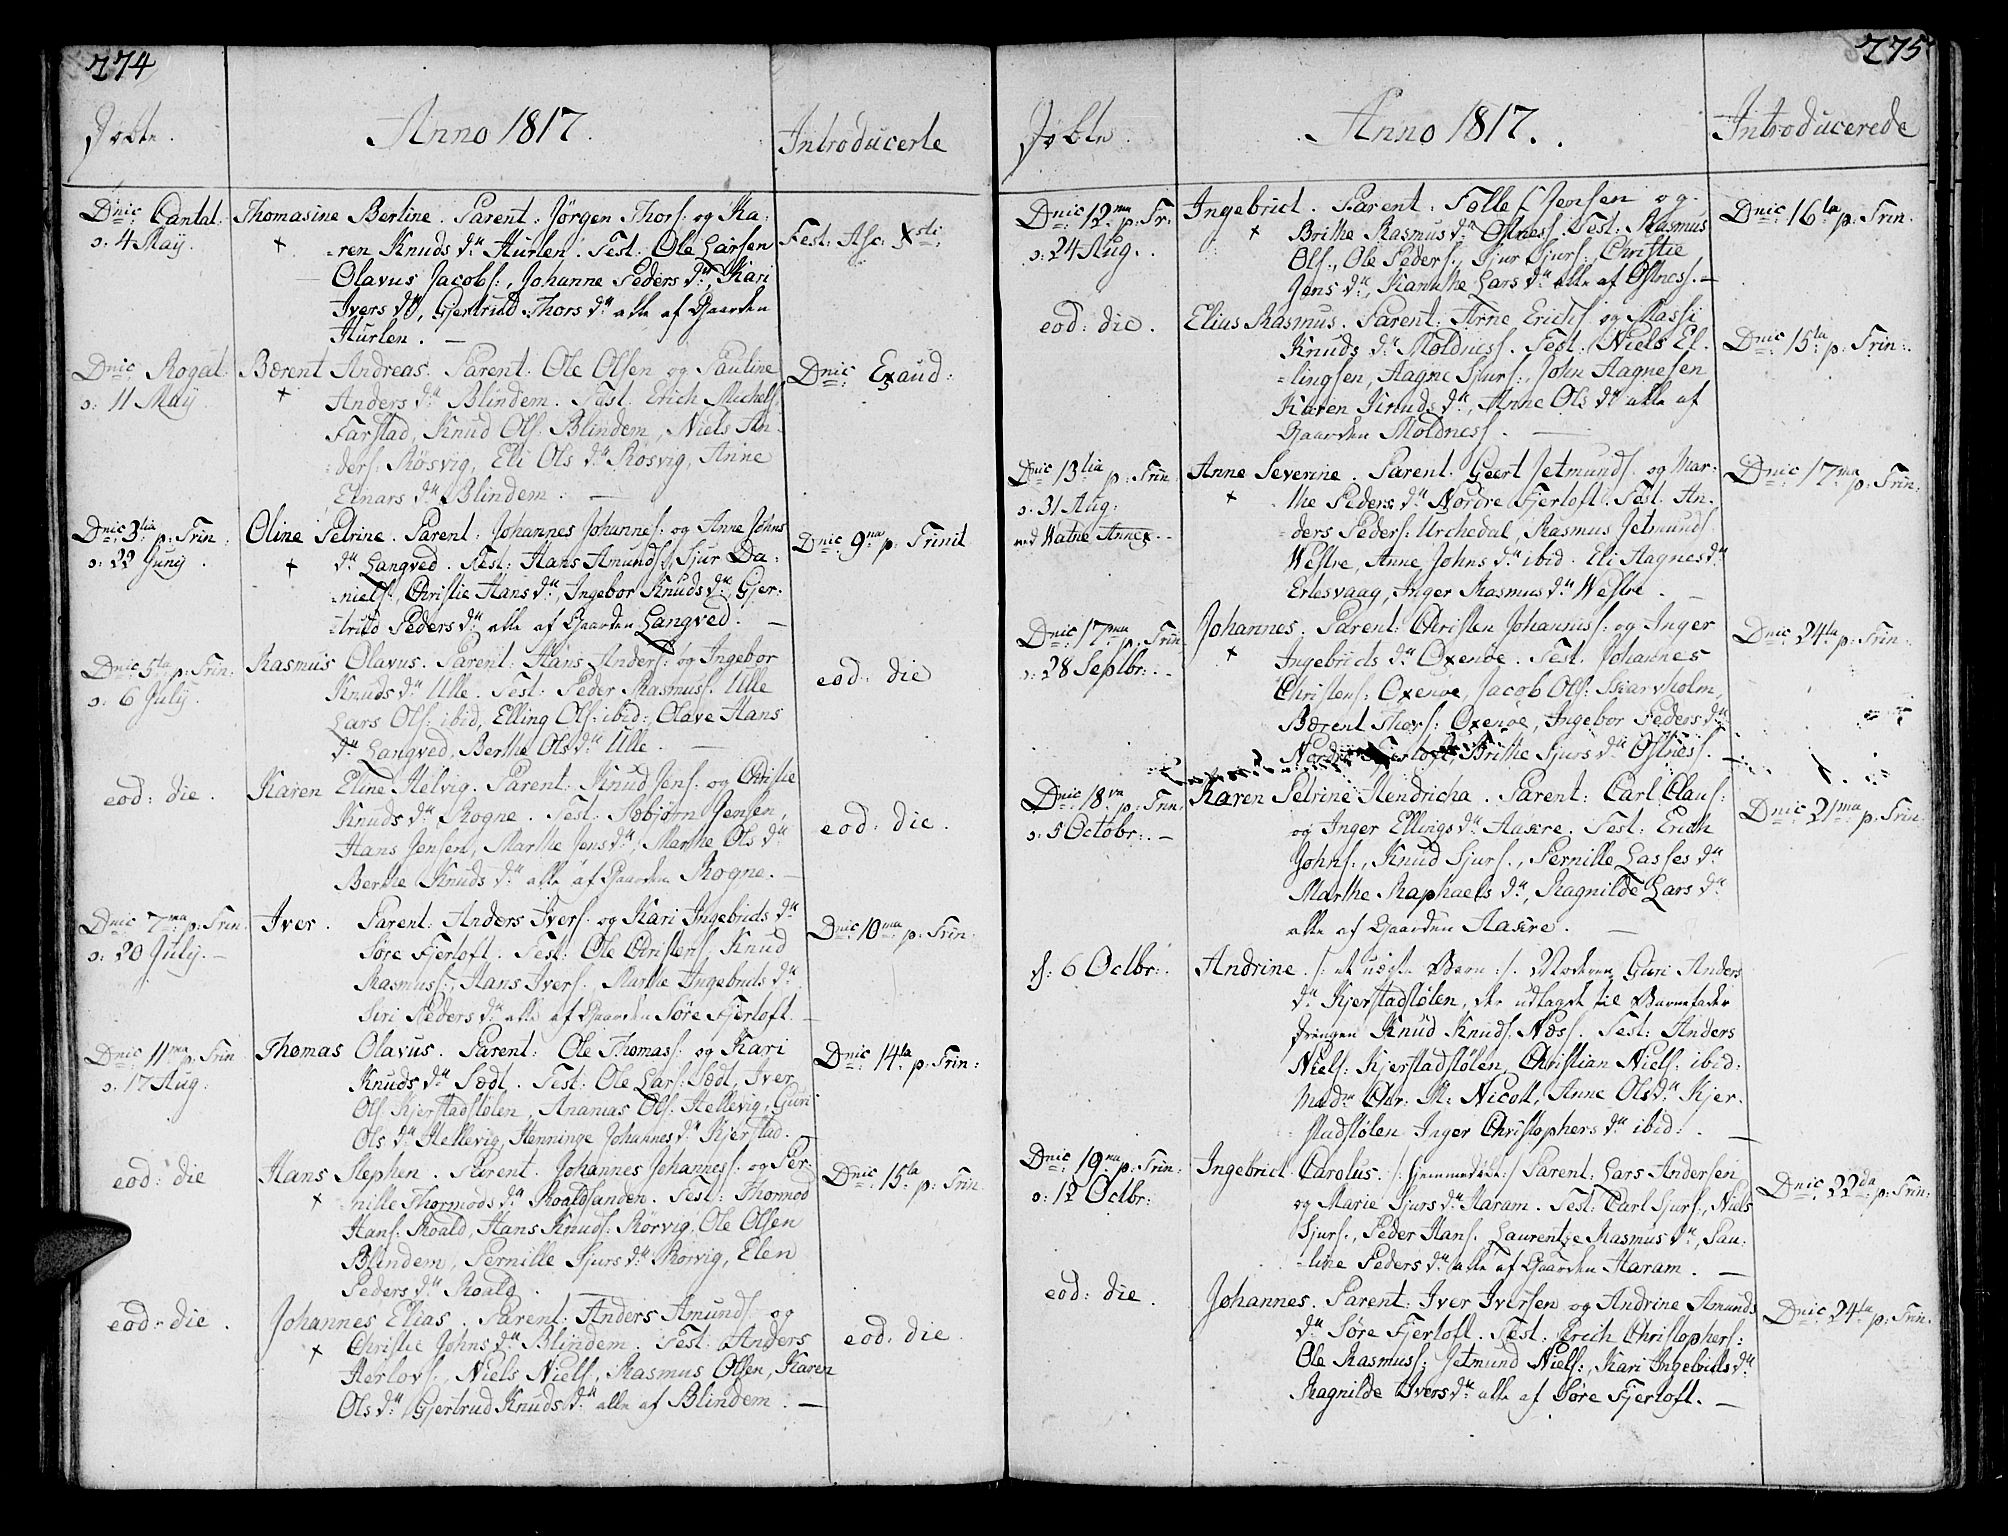 274
Døbte.
Anno 1817.
Introducerte
Dnic: Cantat:
d: 4 May.
Thomasine Bertine. Parent: Jørgen Thors: og Ka-
ren Knuds dr Hurlen. Test: Ole Larsen
Olavus Jacobs:, Johanne Peders dr, Kari
Ivers dr, Gjertrud Thors dr alle af Gaarden
Hurlen. —
Fest: Asc: Xsti:
Dnic: Rogat:
d: 11 May.
Bærent Andreas. Parent: Ole Olsen og Pauline
Anders dr Blindem. Test: Erich Michels:
Farstad, Knud Ols: Blindem, Niels An-
ders: Røsvig, Eli Ols dr Røsvig, Anne
Einars dr Blindem. —
Dnic: Exaud:
Dnic: 3tia p: Trin:
d: 22 Juny.
Oline Petrine. Parent: Johannes Johannes: og Anne Johns
dr Langved. Test: Hans Amunds:, Sjur Da-
niels:, Christie Hans dr, Ingebor Knuds dr, Gjer-
trud Peders dr alle af Gaarden Langved. —
Dnic: 9na p: Trinit
Dnic: 5ta p: Trin:
d: 6 July.
Rasmus Olavus. Parent: Hans Anders: og Ingebor
Knuds dr Ulle. Test: Peder Rasmuss: Ulle
Lars Ols: ibid, Elling Ols: ibid: Olave Hans
dr Langved, Berthe Ols dr Ulle. —
eod: die
eod: die.
Karen Eline Helvig. Parent: Knud Jens: og Christie
Knuds dr Rogne. Test: Sæbjørn Jensen,
Hans Jensen, Marthe Jens dr, Marthe Ols dr
Berthe Knuds dr alle af Gaarden Rogne. —
eod: die.
Dnic: 7ma p: Trin:
d: 20 July. —
Iver. Parent: Anders Ivers: og Kari Ingebrids dr
Søre Fjertoft. Test: Ole Christens:, Knud
Rasmuss:, Hans Ivers:, Marthe Ingebrids dr
Siri Peders dr alle af Gaarden Søre Fjertoft. —
Dnic: 10ma p: Trin:
Dnic: 11ma p: Trin
d: 17 Aug:
Thomas Olavus. Parent: Ole Thomas: og Kari
Knuds dr Sædt. Test: Ole Lars: Sædt, Iver
Ols: Kjerstadstølen, Ananias Ols: Hellevig, Guri
Ols dr Hellevig, Henninge Johannes dr Kjerstad.
Dnic: 14ta p: Trin:
eod: die
Hans Stephen. Parent: Johannes Johanness: og Per-
nille Thormods dr Roaldsanden. Test: Thormod
Hans: Roald, Hans Knuds: Rørvig, Ole Olsen
Blindem, Pernille Sjurs dr Rorvig, Elen
Peders dr Roald.
Dnic: 15ta p: Trin:
eod: die.
Johannes Elias. Parent: Anders Amunds: og
Christie Johns dr Blindem. Test: Anders
Herlovs:, Niels Niels:, Rasmus Olsen, Karen
Ols dr, Gjertrud Knuds dr alle af Blindem. —
eod: die.
275
Døbte.
Anno 1817.
Introducerede
Dnic: 12ma p: Tr:
d: 24 Aug.
Ingebrict. Parent: Folle Jensen og
Brithe Rasmus dr Østness. Test: Rasmus
Ols:, Ole Peders:, Sjur Sjurs:, Christie
Jens dr, Kanuthe Lars dr alle af Østness. —
Dnic: 16ta p: Trin.
eod: die.
Elias Rasmus. Parent: Arne Erichs: og Massi
Knuds dr Moldness. Test: Niels El-
lingsen, Aagne Sjurs:, John Aagnesen
Karen Knuds dr, Anne Ols dr alle af
Gaarden Moldness. —
Dnic: 15ta p: Trin:
Dnic: 13tia p: Trin:
d: 31 Aug:
ved Watne Annex.
Anne Severine. Parent: Geert Jetmunds: og Mar-
the Peders dr Nordre Fjertoft. Test: An-
ders Peders: Urchedal, Rasmus Jetmunds:
Westre, Anne Johns dr ibid. Eli Aagnes dr
Erlesvaag, Inger Rasmus dr Westre. —
Dnic: 17ma p: Trin:
Dnic: 17ma p: Trin
d: 28 Septbr:
Johannes. Parent: Christen Johanness: og Inger
Ingebrids dr Oxenøe. Test. Johannes
Christens: Oxenøe, Jacob Ols: Skarvholm,
Bærent Thors: Oxenøe, Ingebor Peders dr
Nordre Fjertoft, Brithe Sjurs dr Østness.
Dnic: 24ta p: Trin:
Dnic: 18va p: Trin:
d: 5 Octobr: —
Karen Petrine Hendricha. Parent: Carl Claus:
og Inger Ellings dr Aakre. Test: Erich
Johns:, Knud Sjurs:, Pernille Lasses dr
Marthe Raphaels dr, Ragnilde Lars dr
alle af Gaarden Aakre. —
Dnic: 21ma p: Trin:
d: 6 Octbr:
Andrine. /: et uægte Barn :/. Moderen Guri Anders
dr Kjerstadstølen, der udlagde til Barnefader
Drengen Knud Knuds: Næss. Test: Anders
Niels: Kjerstadstølen, Christian Niels: ibid:
Madm Chr: M: Nicoll, Anne Ols dr Kjer-
stadstølen, Inger Christophers dr ibid: —
Dnic: 19na p: Trin:
d: 12 Octbr:
Ingebrict Carolus. /: hjemmedøbt :/ Parent: Lars Andersen
og Marie Sjurs dr Haram. Test: Carl Sjurs:, Niels
Sjurs:, Peder Hans: Laurentze Rasmus dr, Pau-
line Peders dr alle af Gaarden Haram. —
Dnic: 22da p: Trin:
eod: die.
Johannes. Parent: Iver Iversen og Andrine Amunds
dr Søre Fjertoft. Test: Erich Christophers:
Ole Rasmuss:, Jetmund Niels:, Kari Ingebrids dr
Ragnilde Ivers dr alle af Søre Fjertoft. —
Dnic: 24ta p: Trin: